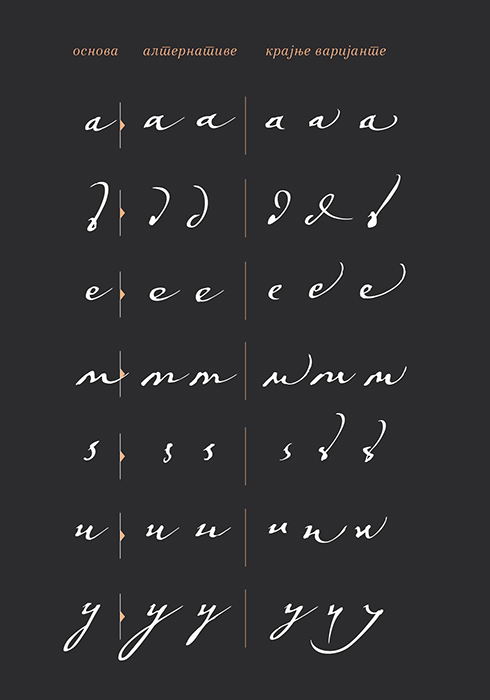 основа алтернативе крајње варијанте
а а а а а а
е е е е е е
т т т т т т
и и и и и и
у у у у у у